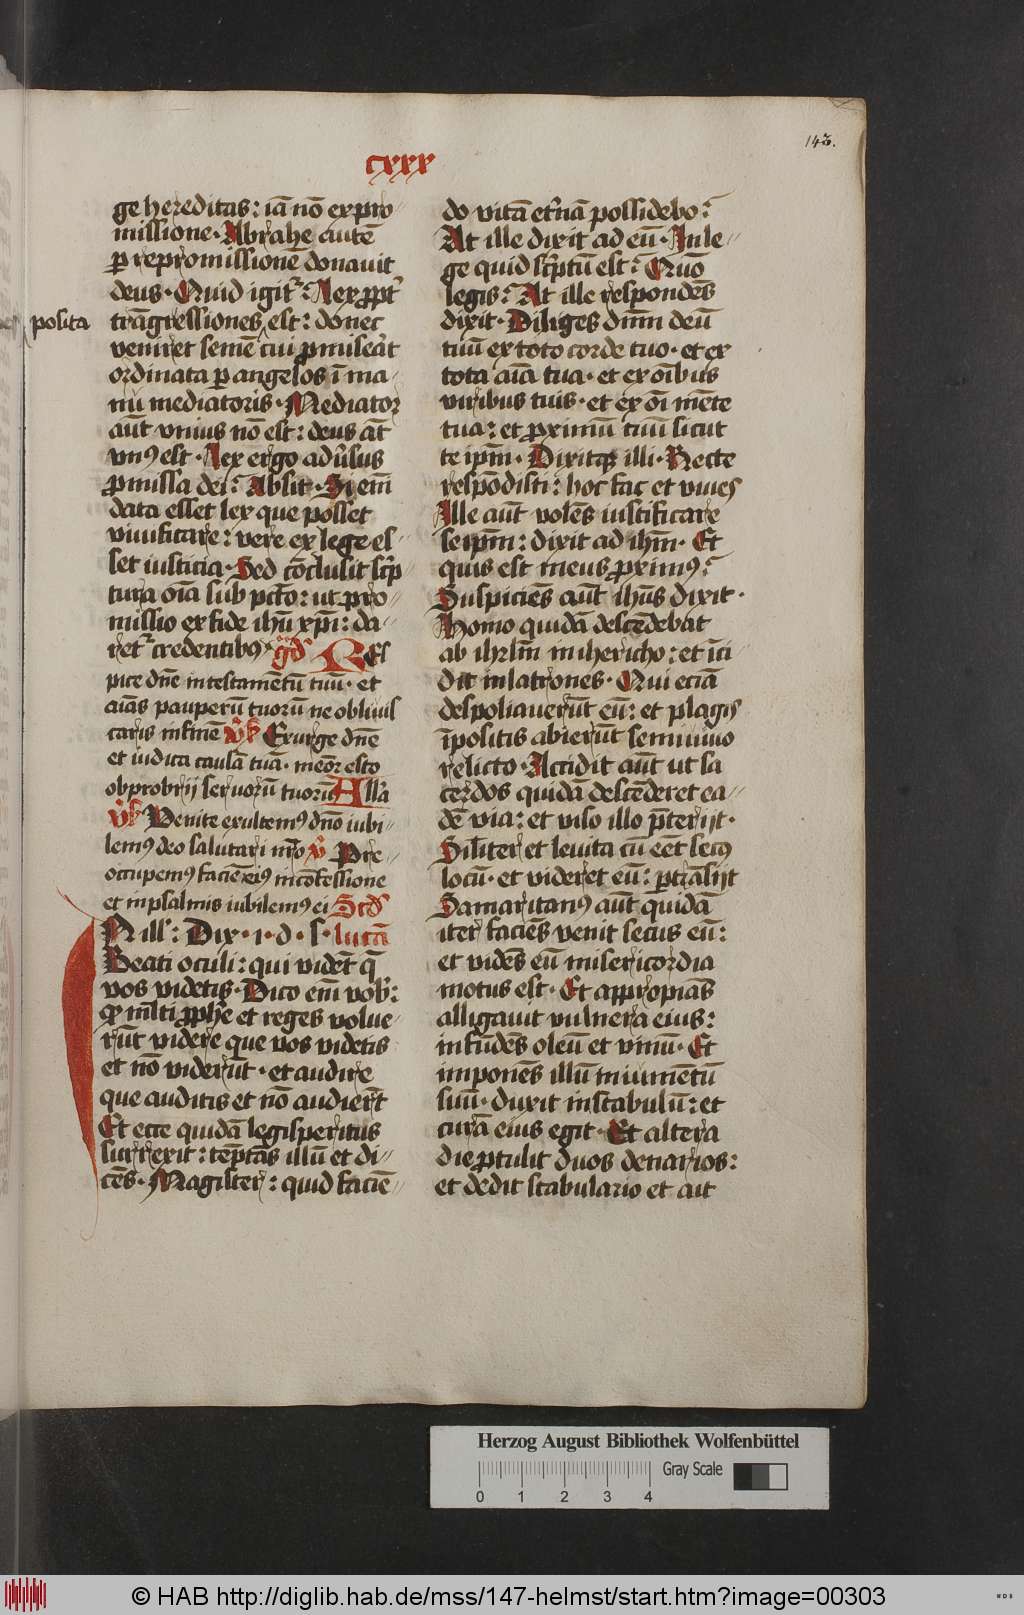 143.
cxxx
ge hereditas: iā nō ex pro-
missione. Abrahe autē
ꝑ repromissionē donauit
deus. Quid igit᷑? Lex ꝓpt᷑
polita
trāgressiones est: donec
veniret semē cui ꝓmiserat
ordinata ꝑ angelos ī ma-
nu mediatoris. Mediator
aūt vnius nō est: deus āt
vnꝰ est. Lex ergo adūsus
ꝓmissa dei? Absit. Si em̄
data esset lex que posset
viuificare: vere ex lege es-
set iusticia. Sed cōclusit sc̄p-
tura oīa sub pctō: ut pro-
missio ex fide ihū xp̄i: da-
ret᷑ credentibꝰ. gd᷑ Res
pice dn̄e in testamētū tuū. et
aīas pauperū tuorū ne obliuis
caris in finē v̓s Exurge dn̄e
et iudica causā tuā. memōr esto
obprobrij seruorū tuorū All'a
v̓s Venite exultemꝰ dn̄o iubi-
lemꝰ deo salutari nr̄o v̓ Pre-
occupemꝰ faciē eiꝰ in cōfessione
et in psalmis iubilemꝰ ei Scd᷑
IN ill'. Dix. i. d. s. lucā
Beati oculi: qui vidēt q̄
vos videtis. Dico em̄ vob̓:
ꝙ m̄lti ꝓphē et reges volue-
rūt videre que vos videtis
et nō viderūt. et audire
que auditis et nō audierūt
Et ecce quidā legisperitus
surrexit: tēptās illū et di-
cēs. Magister: quid faciē-
do vitā et̄nā possidebo?
At ille dixit ad eū. In le-
ge quid sc̄ptū est? Quō
legis? At ille respondēs
dixit. Diliges dn̄m deū
tuū ex toto corde tuo. et ex
tota aīa tua. et ex oībus
viribus tuis. et ex oī mēte
tua: et ꝓximū tuū sicut
te ip̄m. Dixitqꝫ illi. Recte
respōdisti: hoc fac et viues
Ille aūt volēs iustificare
se ip̄m: dixit ad ihm̄. Et
quis est meus ꝓximꝰ?
Suspiciēs aūt ihūs dixit.
Homo quidā descēdebat
ab ihrl̄m in ihericho: et īci
dit in latrones. Qui eciā
despoliauerūt eū: et plagis
īpositis abierūt semiuiuo
relicto. Accidit aūt ut sa
cerdos quidā descēderet ea-
dē via: et viso illo p̄terijt.
Sil̄iter et leuita cū eēt secꝰ
locū. et videret eū: ꝑtrāsijt
Samaritanꝰ aūt quidā
iter faciēs venit secus eū:
et vidēs eū misericordia
motus est. Et appropiās
alligauit vulnera eius:
infūdēs oleū et vinū. Et
imponēs illū in iumētū
suū. duxit in stabulū: et
curā eius egit. Et altera
die ꝓtulit duos denarios:
et dedit stabulario et ait
Herzog August Bibliothek Wolfenbüttel
Gray Scale
0 1 2 3 4
© HAB http://diglib.hab.de/mss/147-helmst/start.htm?image=00303